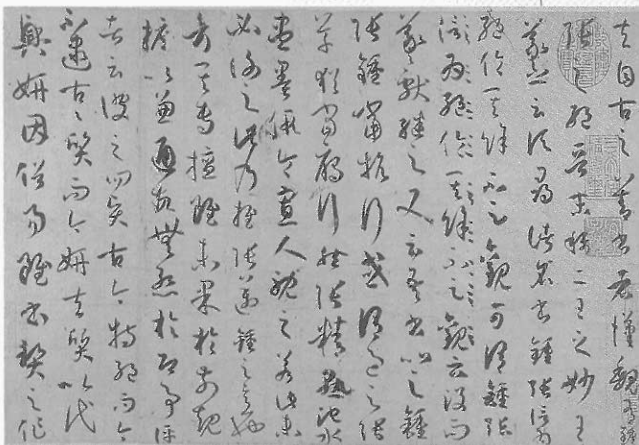 夫自古之善書者漢魏有鍾
張之絕晉末稱二王之妙王
羲之云頃尋諸名書鍾張信為
絕倫其餘不足觀可謂鍾張
信為絕倫其餘不足觀云沒而
羲獻繼之又云吾書比之鍾
張鍾當抗行或謂過之張
草猶當鴈行然張精熟池水
盡墨假令寡人耽之若此未
必謝之此乃推張邁鍾之意也
考其專擅雖未果於前規
摭以兼通故無慙於即事評
者云彼之四賢古今特絕而今
不逮古古質而今妍夫質以代
興妍因俗易雖書契之作